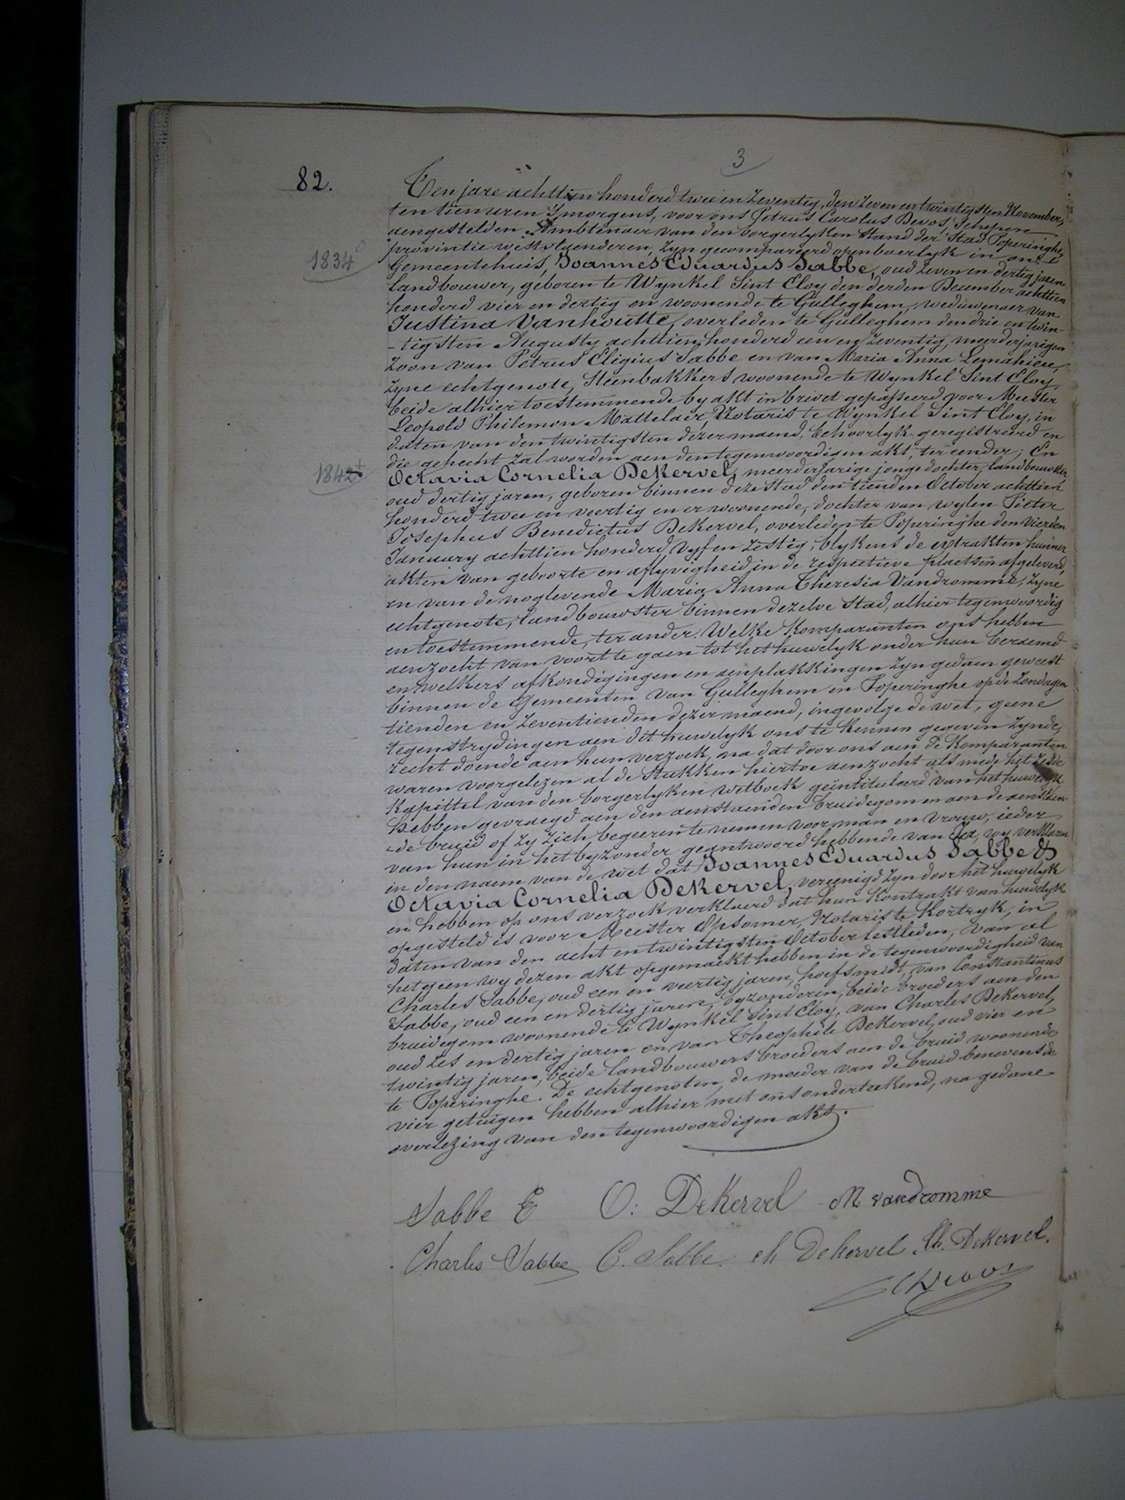 3
82.
Ten jare achttien honderd twee en zeventig, den zeven en twintigsten November,
ten tien uren s'morgens, voor ons Petrus Carolus Devos, Schepen
aengestelden Ambtenaer van den borgerlyken Stand der Stad Poperinghe
provintie westvlaenderen, zyn gecompareerd openbaerlyk in ons
1834
Gemeentehuis, Joannes Eduardus Sabbe, oud zeven en dertig jaren
landbouwer, geboren te Wynkel Sint Eloy den derden December achttien
honderd vier en dertig en woonende te Gulleghem, weduwenaer van
Justina Vanhoutte, overleden te Gulleghem den drie en twin-
-tigsten Augusty achttien honderd een en zeventig, meerderjarigen
zoon van Petrus Eligius Sabbe en van Maria Anna Lemahieu,
zyne echtgenote, Steenbakkers woonende te Wynkel Sint Eloy
beide alhier toestemmende by akt in brevet gepasseerd voor Meester
Leopold Philemon Mattelaer, Notaris te Wynkel Sint Eloy, in
daten van den twintigsten dezer maend, behoorlyk geregistreerd en
die gehecht zal worden aen den tegenwoordigen akt, ter eender; En
1842
Octavia Cornelia DeKervel, meerderjarige jonge dochter, landbouwster
oud dertig jaren, geboren binnen deze stad den tienden October achttien
honderd twee en veertig en er woonende, dochter van wylen Pieter
Josephus Benedictus DeKervel, overleden te Poperinghe den vierden
January achttien honderd vyf en zestig, blykens de extrakten hunner
akten van geboorte en aflyvigheid in de respectieve plaetsen afgeleverd,
en van de noglevende Maria Anna Theresia Vandromme, zyne
echtgenote, landbouwster binnen dezelve Stad, alhier tegenwoordig
en toestemmende, ter ander. Welke komparanten ons hebben
aenzocht van voort te gaen tot het huwelyk onder hun beraemd
en welkers afkondigingen en aenplakkingen zyn gedaen geweest
binnen de Gemeenten van Gulleghem en Poperinghe op de Zondagen
tienden en zeventienden dezer maend, ingevolge de wet, geene
tegenstrydingen aen dit huwelyk ons te kennen gegeven zynde,
recht doende aen hun verzoek, na dat door ons aen de komparanten
waren voorgelezen al de Stukken hiertoe aenzocht als mede het zesde
kapittel van den borgerlyken wetboek geïntituleerd van het huwelyk
hebben gevraegd aen den aenstaenden bruidegom en aen de aenstaen-
-de bruid of zy zich begeeren te nemen voor man en vrouw, ieder
van hun in het byzonder geantwoord hebbende van Ja, wy verklaren
in den naem van de wet dat Joannes Eduardus Sabbe &
Octavia Cornelia DeKervel, vereenigd zyn door het huwelyk
en hebben op ons verzoek verklaerd dat hun kontrakt van huwelyk
opgesteld is voor Meester Opsomer, Notaris te Kortryk, in
daten van den acht en twintigsten October lestleden, Van al
hetgeen wy dezen akt opgemaekt hebben in de tegenwoordigheid van
Charles Sabbe, oud een en veertig jaren, hoefsmidt, van Constantinus
Sabbe, oud een en dertig jaren, byzonderen, beide broeders aen den
bruidegom woonende te Wynkel Sint Eloy, van Charles DeKervel,
oud zes en dertig jaren en van Theophile DeKervel, oud vier en
twintig jaren, beide landbouwers broeders aen de bruid woonende
te Poperinghe. De echtgenoten, de moeder van de bruid benevens de
vier getuigen hebben alhier met ons ondertekend, na gedane
overlezing van den tegenwoordigen akt.
Sabbe E O: DeKervel M vandromme
Charles Sabbe C. Sabbe. Ch DeKervel Th. DeKervel.
CDevos